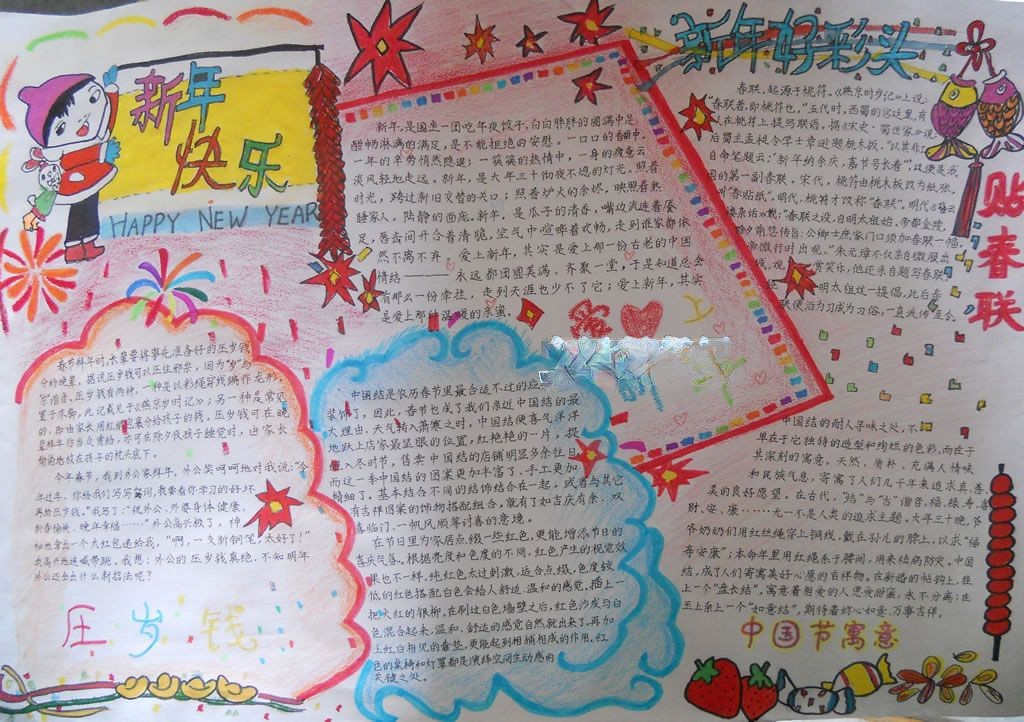 新年
快乐
HAPPY NEW YEAR
新年,是围坐一团吃年夜饺子,白白胖胖的圆满中是
酣畅淋漓的满足,是不能拒绝的安慰。一口口的香甜中,
一年的辛劳悄然隐退;一筷筷的热情中,一身的疲惫云
淡风轻地走远。新年,是大年三十彻夜不熄的灯光,照着
时光,跨过新旧交替的天口;照着炉火的余烬,映照着熟
睡家人,陆静的面庞。新年,是瓜子的清香,嘴边流连着
足,唇齿间开合着清脆,空气中喧哗着欢畅,走到谁家都依
然不离不弃。爱上新年,其实是爱上那一份古老的中国
情结——永远都团圆美满、齐聚一堂,于是知道总会
有那么一份牵挂,走到天涯也少不了它;爱上新年,其实
是爱上那种温暖的亲蜜。
新年好彩头
春联,起源于桃符。《燕京时记》上说:
"春联者,即桃符也。"五代时,西蜀的宫廷里,有
人在桃符上提写联语,据《宋史·蜀世家》说:
后蜀主孟昶令学士章逊题桃木板,"以其非工
自命笔题云:'新年纳余庆,嘉节号长春'",这便是我
国的第一副春联。宋代,桃符由桃木板改为纸张,
"春贴纸"。明代,桃符才改称"春联"。明代《簪云
楼杂话》载:"春联之设,自明太祖始,帝都金陵,
除夕前忽传旨:公卿士庶家门口须加春联一幅,
帝微行时出现。"朱元璋不仅亲自微服出
城,观赏笑乐,他还亲自题写春联
明太祖这一提倡,此后春
联便沿为习成为习俗,一直流传至今。
贴春联
春节拜年时,长辈要将事先准备好的压岁钱
分给晚辈,据说压岁钱可以压住邪祟,因为"岁"与
"祟"谐音,压岁钱有两种,一种是以彩绳穿线编作龙形,
置于床脚,此记载见于《燕京岁时记》;另一种是常见
的,即由家长用红纸包裹分给孩子的钱。压岁钱可在晚
辈拜年后当众赏给,亦可在除夕夜孩子睡觉时,由家长
偷偷地放在孩子的枕头底下。
今年春节,我到外公家拜年,外公笑呵呵地对我说:"今
再给压岁钱。"我写了:"祝外公、外婆身体健康,
新春愉快、晚年幸福……"外公高兴极了,神
秘地拿出一个大红包送给我,"啊,一支新钢笔,太好了!"
我高兴地连喊带跳,我想:外公的压岁钱真绝,不知明年
外公还会出什么新招法呢?
压岁钱
中国结是农历春节里最合适不过的应
装饰了,因此,春节也成了我们亲近中国结的最
大理由。天气转入萧寒之时,中国结便喜气洋洋
地跃上店家最显眼的位置,红艳艳的一片,提
入冬时节,售卖中国结的店铺明显多余往日,
而这一季中国结的图案更加丰富了、手工更加
精细了。基本结合不同的结饰结合在一起,或者与其它
有吉祥图案的饰物搭配组合,就有了如吉庆有余、双
喜临门、一帆风顺等讨喜的意境。
在节日里为家居点缀一些红色,更能增添节日的
喜庆气氛。根据亮度和色度的不同,红色产生的视觉效
果也不一样,纯红色太过刺激,适合点缀,色度较
低的红色搭配白色会给人舒适、温和的感觉。插上一
把火红的银柳,在刷过白色墙壁之后,红色沙发与白
色混合起来,温和、舒适的感觉自然就出来了。再加
上红白相见的靠垫,更能起到相辅相成的作用。红
色的桌椅和灯罩都是演绎空间生动感的
关键之处。
中国结的耐人寻味之处,不
单在于它独特的造型和绚烂的色彩,而在于
其深刻的寓意。天然、质朴、充满人情味
和民族气息,寄寓了人们几千年来追求真、善、
美的良好愿望。在古代,"结"与"吉"谐音,福、禄、寿、喜
财、安、康……无一不是人类的追求主题。大年三十晚,爷
爷奶奶们用红丝绳穿上铜线,戴在孙儿的脖上,以求"福
寿安康";本命年里用红绳系于腰间,用来祛病防灾。中国
结,成了人们寄寓美好心愿的吉祥物。在新婚的帖钩上,挂
上一个"盘长结",寓意着相爱的人恩爱甜蜜,永不分离;在
玉上系上一个"如意结",期待着称心如意、万事吉祥。
中国节寓意